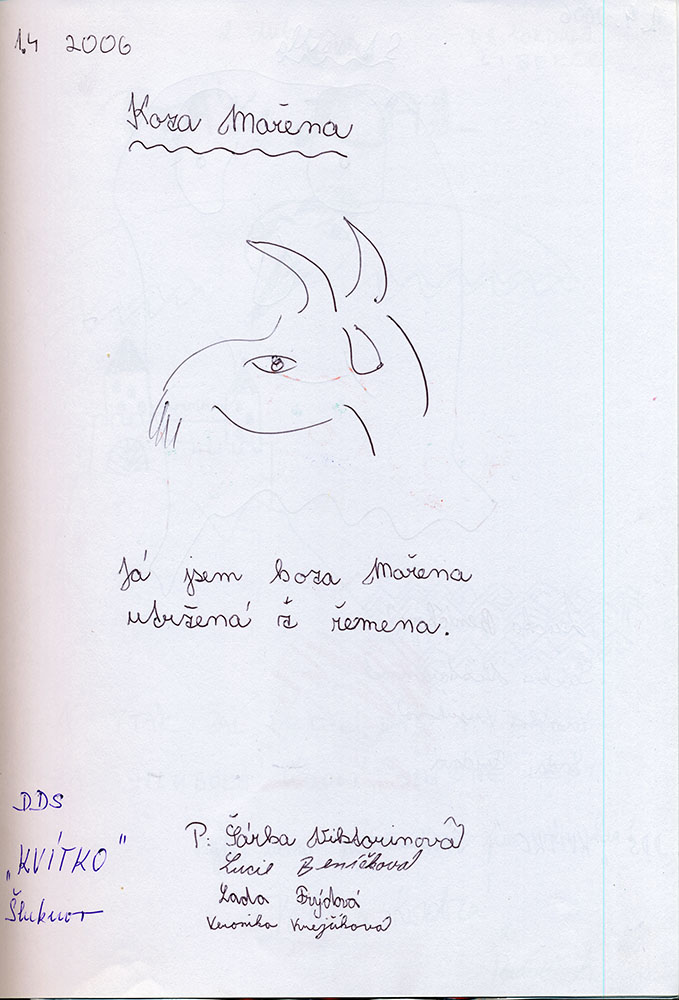 1.4 2006
Koza Mařena
Já jsem koza Mařena
utržená z řemena.
DDS
„KVÍTKO"
Šluknov
P: Šárka Viktorinová
Lucie Beníčková
Lada Frýdová
Veronika Krejčíková